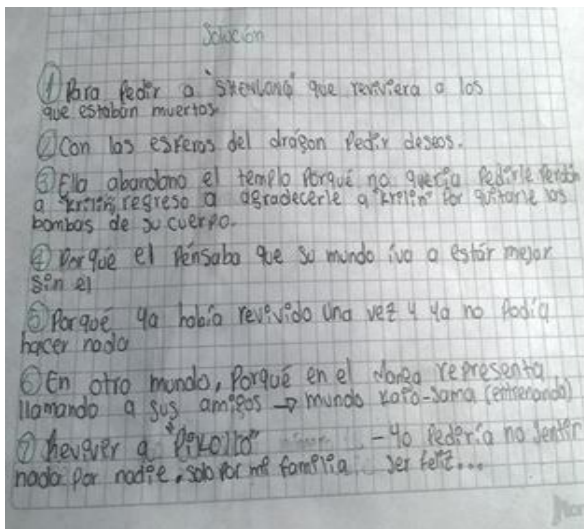 Solución
① Para Pedir a "SHENLONG" que reviviera a los
que estaban muertos.
② Con las esferas del dragon Pedir deseos.
③ Ella abandono el templo Porqué no quería Pedirle Perdón
a "krilin", regreso a agradecerle a "krilin" Por quitarle las
bombas de su cuerpo.
④ Por qué el Pensaba que su mundo iva a estár mejor
sin el
⑤ Porqué ya había revivido una vez y ya no Podía
hacer nada
⑥ En otro mundo, Porqué en el representa
llamando a sus amigos → mundo kaio-sama (entrenando)
⑦ a "Pikollo" - Yo Pediría no sentir
nada Por nadie, solo Por mi familia ser feliz...